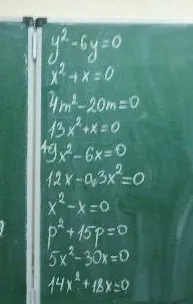 y²-6y=0
x²+x=0
4m²-20m=0
13x²+x=0
49x²-6x=0
12x-0,3x²=0
x²-x=0
p²+15p=0
5x²-30x=0
14x²+18x=0